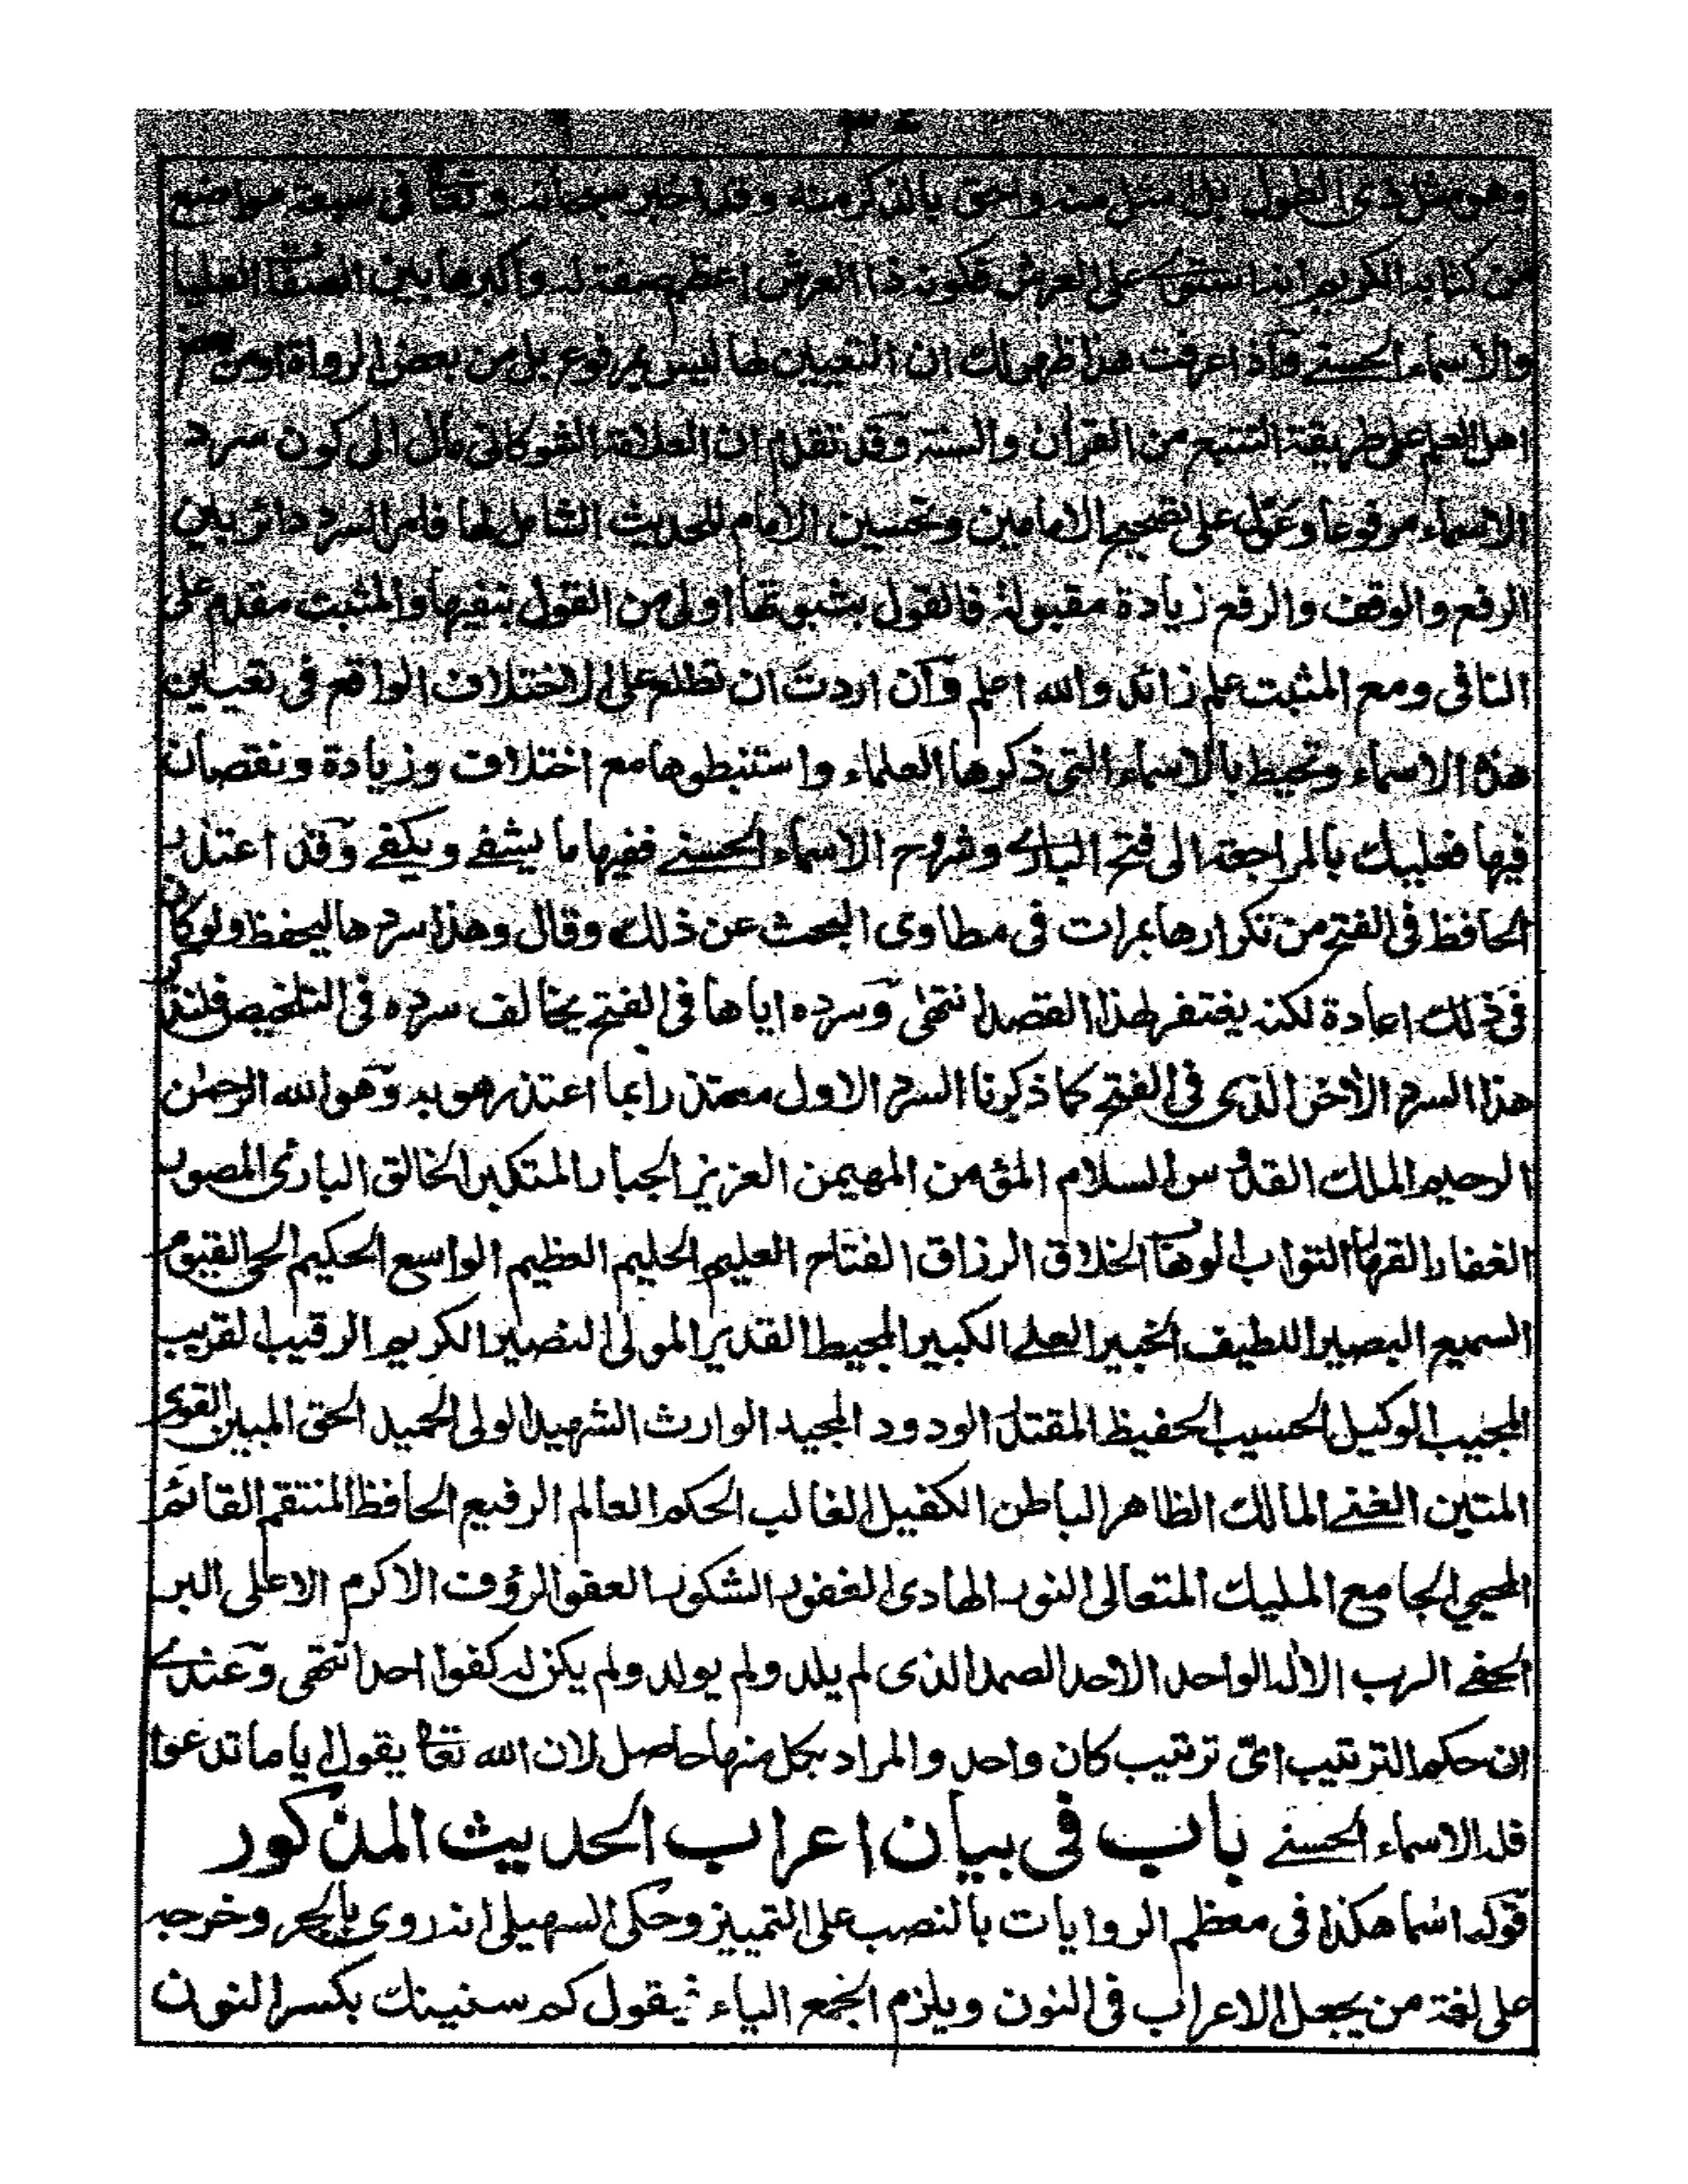 وهو مثل ذى الطول بل امثل منه واحق بالذكر منه وقد اخبر سبحانه وتعا فى سبعة مواضع
من كتابه الكريم انه استوى على العرش فكونه ذا العرش اعظم صفة له واكبرها بين الصفات العليا
والاسماء الحسنے وآذا عرفت هذا ظهر لك ان التعيين لها ليس بمرفوع بل من بعض الرواة او من
اهل العلم على طريقة التتبع من القرأن والسنة وقد تقدم ان العلامة الشوكانى مال الى كون سرد
الاسماء مرفوعا وعوّل على تصحيح الامامين وتحسين الامام للحديث الشامل لها فامر السرد دائر بين
الرفع والوقف والرفع زيادة مقبولة فالقول بثبوتها اولى من القول بنفيها والمثبت مقدم على
النافى ومع المثبت علم زائد والله اعلم وآن اردت ان تطلع على الاختلاف الواقع فى تعيين
هذه الاسماء وتحيط بالاسماء التى ذكرها العلماء واستنبطوها مع اختلاف وزيادة ونقصان
فيها فعليك بالمراجعة الى فتح البارے وشروح الاسماء الحسنے ففيها ما يشفے ويكفے وقد اعتذر
الحافظ فى الفتح من تكرارها بمرات فى مطاوى البحث عن ذلك وقال وهذا سردها ليحفظ ولو كان
فى ذلك اعادة لكنه يغتفر لهذا القصد انتهى وسرده اياها فى الفتح يخالف سرده فى التلخيص فلنذكر
هذا السرد الأخر الذى فى الفتح كما ذكرنا السرد الاول معتذرا بما اعتذر هو به وهو الله الرحمٰن
الرحيم الملك القدوس السلام المؤمن المهيمن العزيز الجبار المتكبر الخالق البارئ المصور
الغفار القهار التواب الوهاب الخلاق الرزاق الفتاح العليم الحليم العظيم الواسع الحكيم الحى القيوم
السميع البصير اللطيف الخبير العلے الكبير المحيط القدير المولى النصير الكريم الرقيب القريب
المجيب الوكيل الحسيب الحفيظ المقتدر الودود المجيد الوارث الشهيد الولى الحميد الحق المبين القوى
المتين الغنے المالك الظاهر الباطن الكفيل الغالب الحكم العالم الرفيع الحافظ المنتقم القائم
المحيي الجامع المليك المتعالى النور الهادى الغفور الشكور العفو الرؤف الاكرم الاعلى البر
الحفے الرب الاله الواحد الاحد الصمد الذى لم يلد ولم يولد ولم يكن له كفوا احد انتهى وعندے
ان حكم الترتيب اىّ ترتيب كان واحد والمراد بكل منها حاصل لان الله تعا يقول ايا ما تدعوا
فله الاسماء الحسنے باب فى بيان اعراب الحديث المذكور
قوله اسما هكذا فى معظم الروايات بالنصب على التمييز وحكى السهيلى انه روى بالجر وخرجه
على لغة من يجعل الاعراب فى النون ويلزم الجمع الياء فيقول كم سنينك بكسر النون